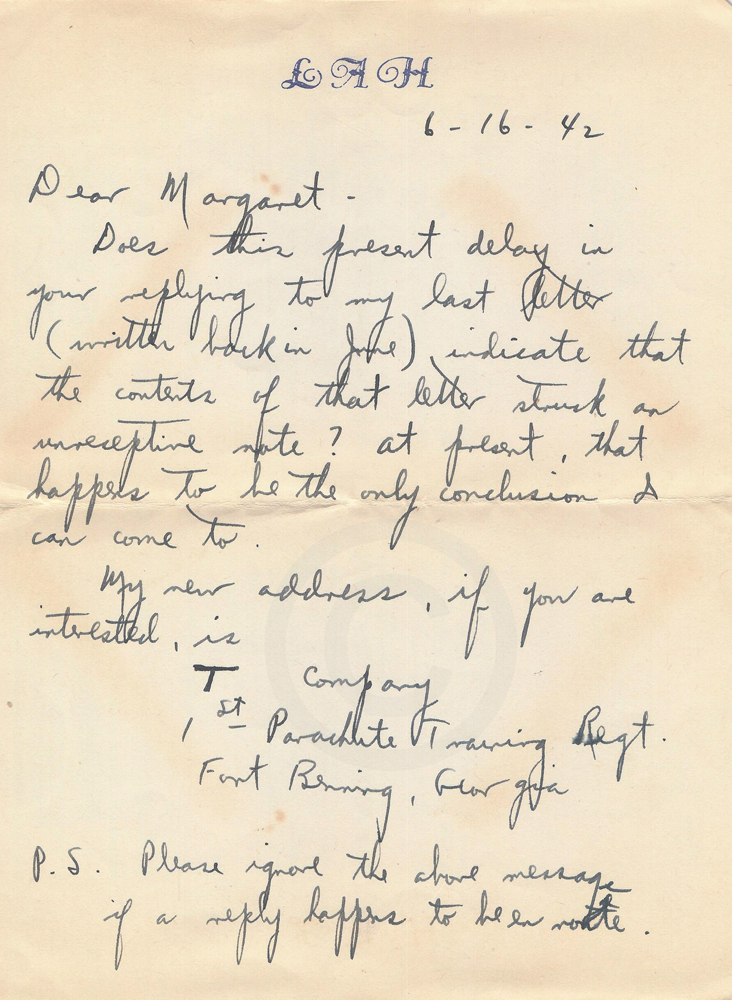 LAH
6-16-42
Dear Margaret -
Does this present delay in
your replying to my last letter
(written back in June), indicate that
the contents of that letter struck an
unreceptive note? At present, that
happens to be the only conclusion I
can come to.
My new address, if you are
interested, is
T Company
1st Parachute Training Regt.
Fort Benning, Georgia
P.S. Please ignore the above message
if a reply happens to be en route.